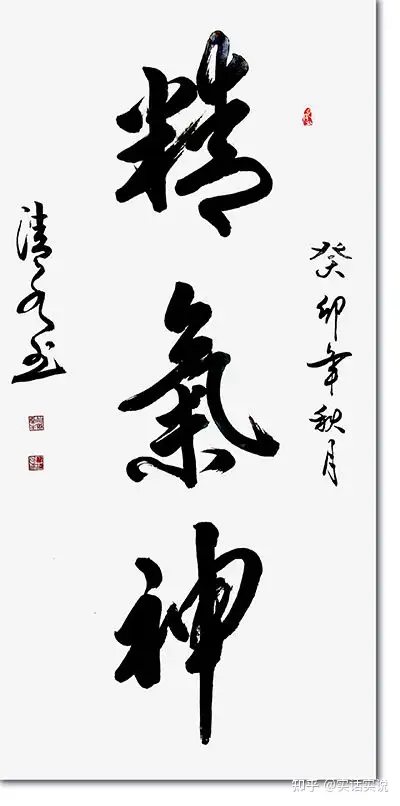 癸卯年秋月
精氣神
知乎 @实话实说